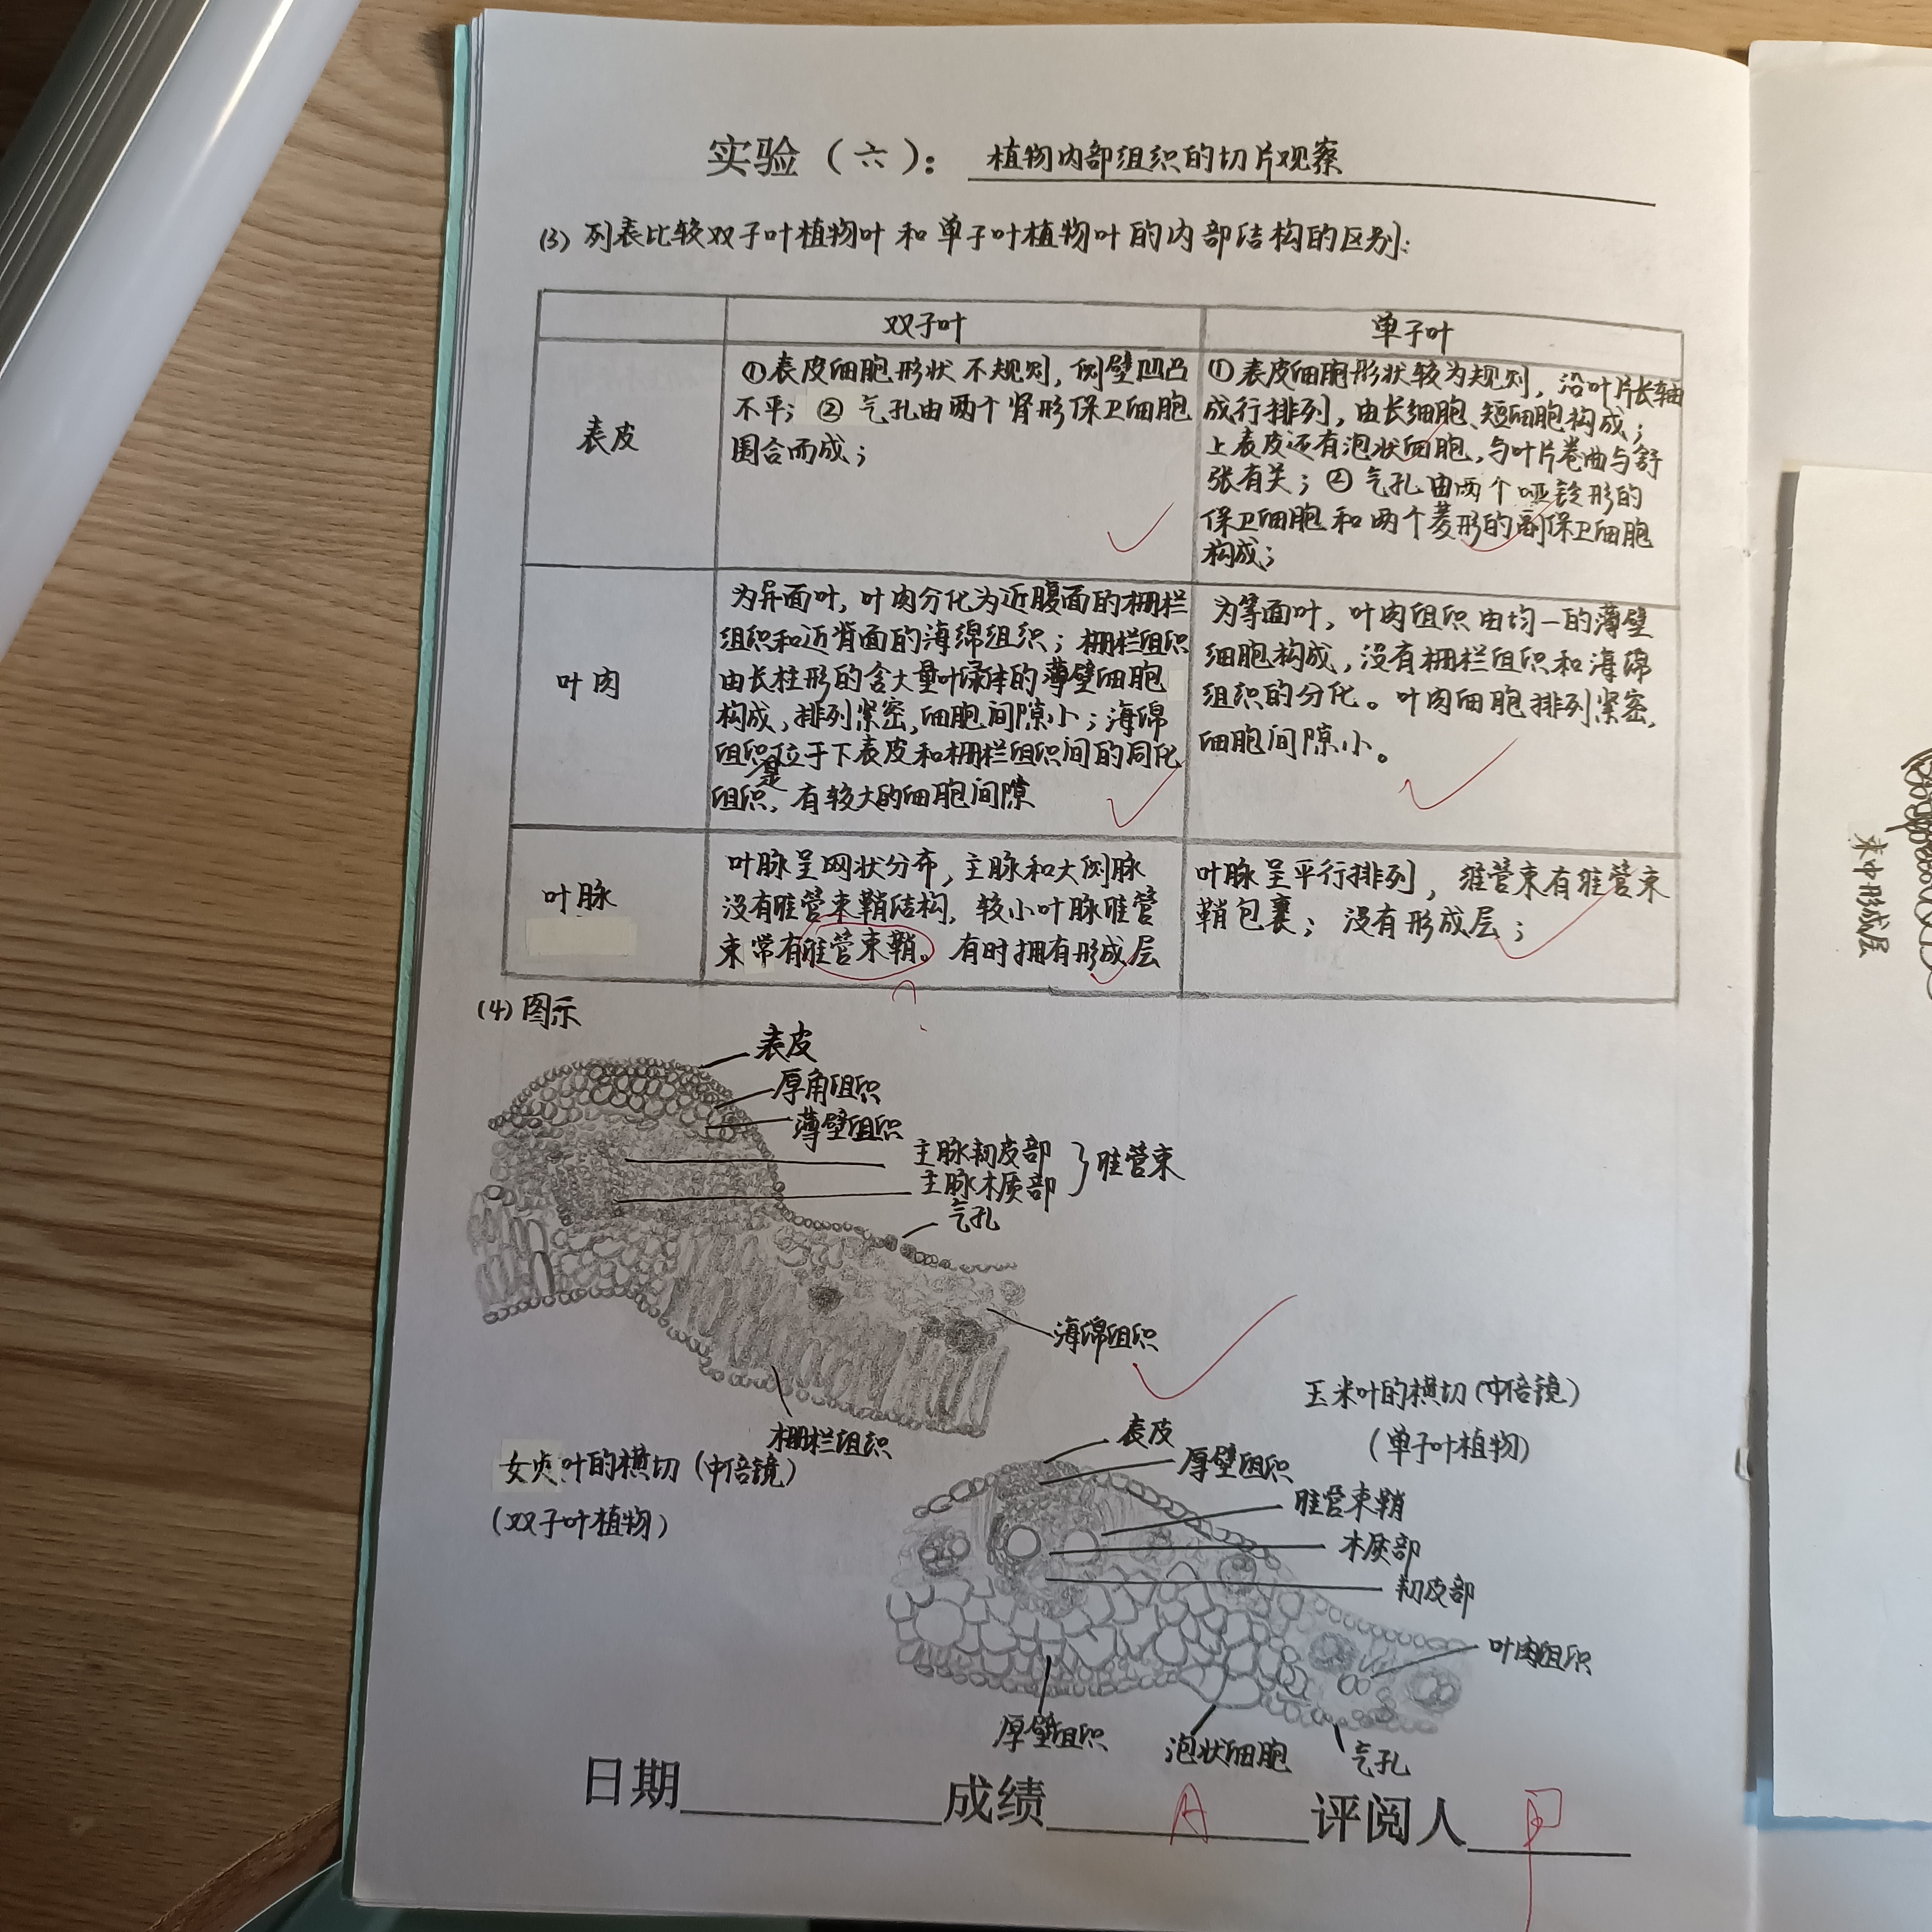 实验（六）：植物内部组织的切片观察
(3) 列表比较双子叶植物叶和单子叶植物叶的内部结构的区别:
双子叶
单子叶
表皮
①表皮细胞形状不规则，侧壁凹凸
不平；② 气孔由两个肾形保卫细胞
围合而成；
①表皮细胞形状较为规则，沿叶片长轴
成行排列，由长细胞、短细胞构成；
上表皮还有泡状细胞，与叶片卷曲与舒
张有关；② 气孔由两个哑铃形的
保卫细胞和两个菱形的副保卫细胞
构成；
叶肉
为异面叶，叶肉分化为近腹面的栅栏
组织和近背面的海绵组织；栅栏组织
由长柱形的含大量叶绿体的薄壁细胞
构成，排列紧密，细胞间隙小；海绵
组织是位于下表皮和栅栏组织间的同化
组织，有较大的细胞间隙
为等面叶，叶肉组织由均一的薄壁
细胞构成，没有栅栏组织和海绵
组织的分化。叶肉细胞排列紧密，
细胞间隙小。
叶脉
叶脉呈网状分布，主脉和大侧脉
没有维管束鞘结构，较小叶脉维管
束常有维管束鞘。有时拥有形成层
?
叶脉呈平行排列，维管束有维管束
鞘包裹；没有形成层；
(4) 图示
表皮
厚角组织
薄壁组织
主脉韧皮部
主脉木质部
维管束
气孔
海绵组织
栅栏组织
女贞叶的横切（中倍镜）
（双子叶植物）
玉米叶的横切（中倍镜）
（单子叶植物）
表皮
厚壁组织
维管束鞘
木质部
韧皮部
叶肉组织
厚壁组织
泡状细胞
气孔
日期 成绩 A 评阅人
束中形成层